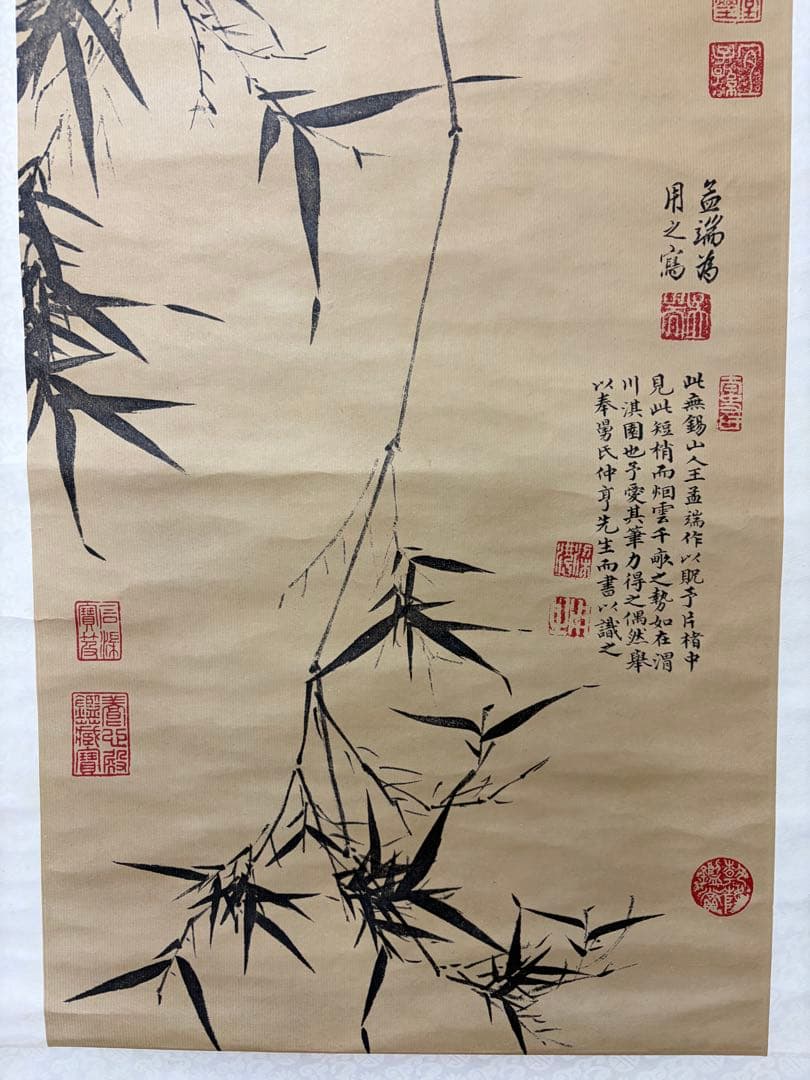 孟端為
用之寫
此無錫山人王孟端作以貺予片楮中
見此短梢而烟雲千畝之勢如在渭
川淇園也予愛其筆力得之偶然舉
以奉舅氏仲亨先生而書以識之
乾隆
鑑賞
石渠
寶笈
養心殿
鑑藏寶